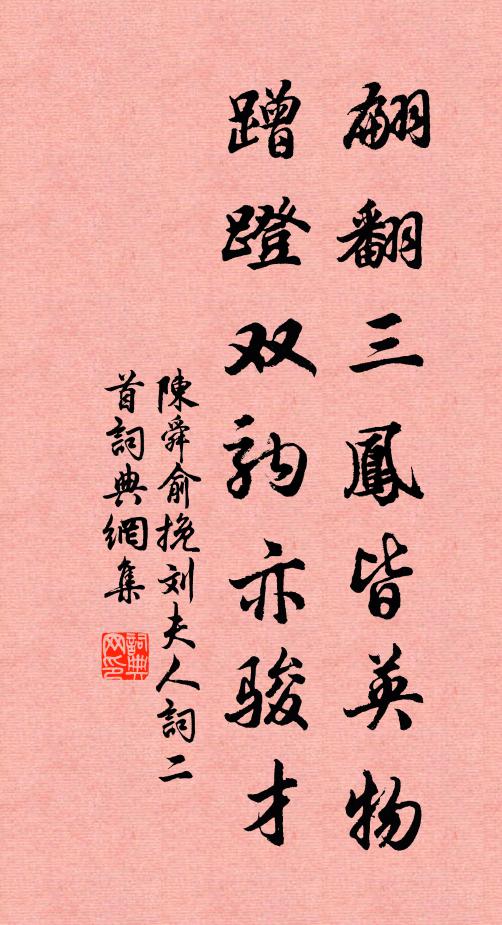 翩翻三鳳皆英物
蹭蹬双亦骏才
陳舜俞挽刘夫人詞二
首詞典網集
詞典
网印